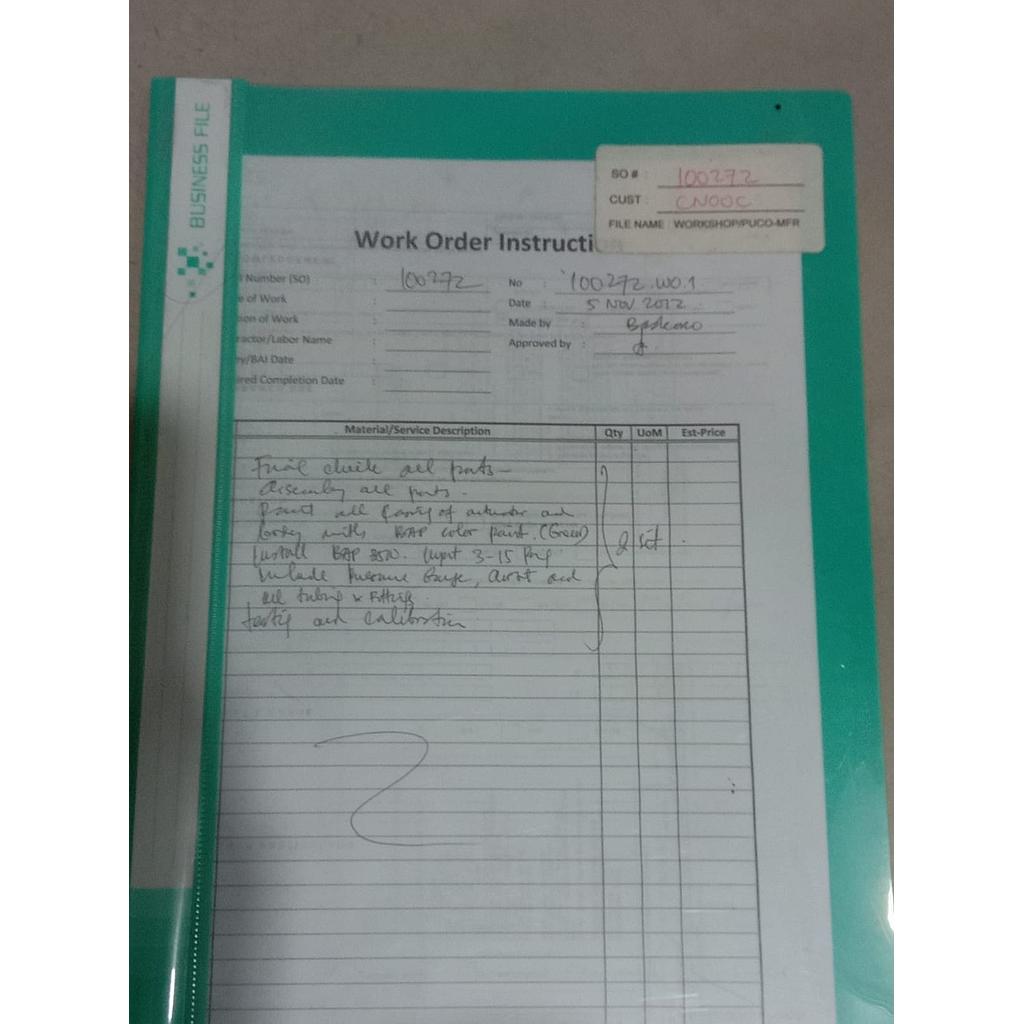 BUSINESS FILE
SO # : 100272
CUST : CNOOC
FILE NAME : WORKSHOP/PUCO-MFR
Work Order Instructi
Number (SO) : 100272 No 100272.WO.1
e of Work : Date : 5 NOV 2012
ion of Work : Made by :
ractor/Labor Name : Approved by :
ry/BAI Date :
ired Completion Date :
Material/Service Description Qty UoM Est-Price
Final check all parts
Assembly all parts.
Paint all of actuator and
with BAP color paint. (Green) 2 set
Install BAP Input 3-15 Psig
Include Pressure Gauge, and
all tubing & Fitting
testing and calibration